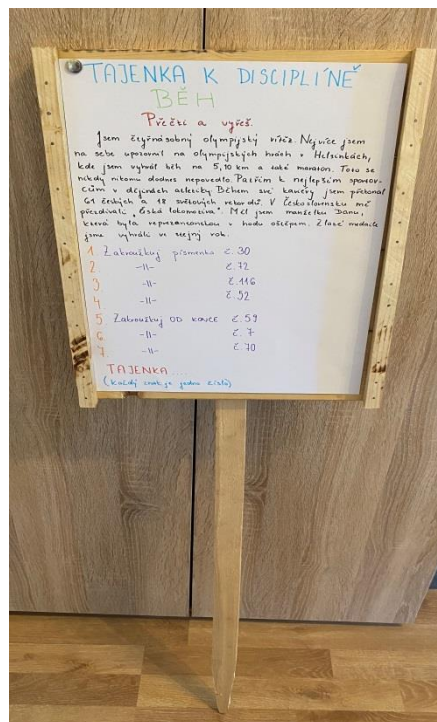 TAJENKA K DISCIPLÍNĚ
BĚH
Přečti a vyřeš.
Jsem čtyřnásobný olympijský vítěz. Nejvíce jsem
na sebe upozornil na olympijských hrách v Helsinkách,
kde jsem vyhrál běh na 5,10 km a také maraton. Toto se
nikdy nikomu dodnes nepovedlo. Patřím k nejlepším sportov-
cům v dějinách atletiky. Během své kariéry jsem překonal
61 českých a 18 světových rekordů. V Československu mě
přezdívali „česká lokomotiva". Měl jsem manželku Danu,
která byla reprezentantkou v hodu oštěpem. Zlaté medaile
jsme vyhráli ve stejný rok.
1. Zakroužkuj písmenko č. 30
2. -||- č. 72
3. -||- č. 116
4. -||- č. 92
5. Zakroužkuj OD KONCE č. 59
6. -||- č. 7
7. -||- č. 70
TAJENKA....
(každý znak je jedno číslo)